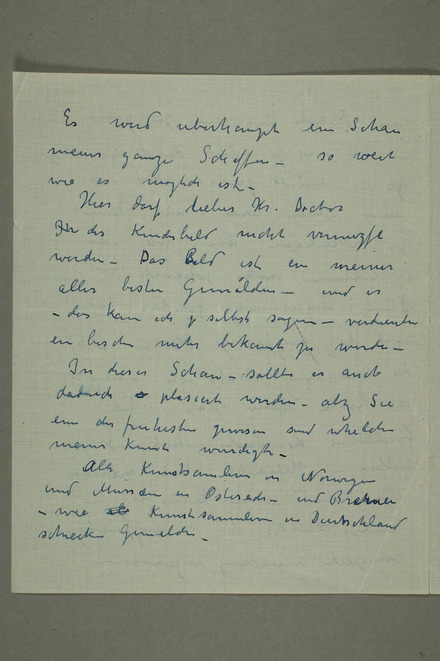 Es wird überhaupt ein Schau
meines ganze Schaffen – so weit
wie es möglich ist –
Hier darf lieber Hr. Doctor
das Kinderbild nicht
werden – Das Bild ist ein meiner
aller besten Gemälden – und es
– das kan ich ja selbst sagen – verdiente
ein bischen mehr bekannt zu werde –
In dieser Schau – sollte es auch
dadurch plasiert werden – als Sie
ein der frühesten gewesen sind welche
meine Kunst würdigte –
Alle Kunstsamlern in Norwegen
und Museen in und Bremen
– wie Kunstsammlern in Deutschland
schicken Gemälden –